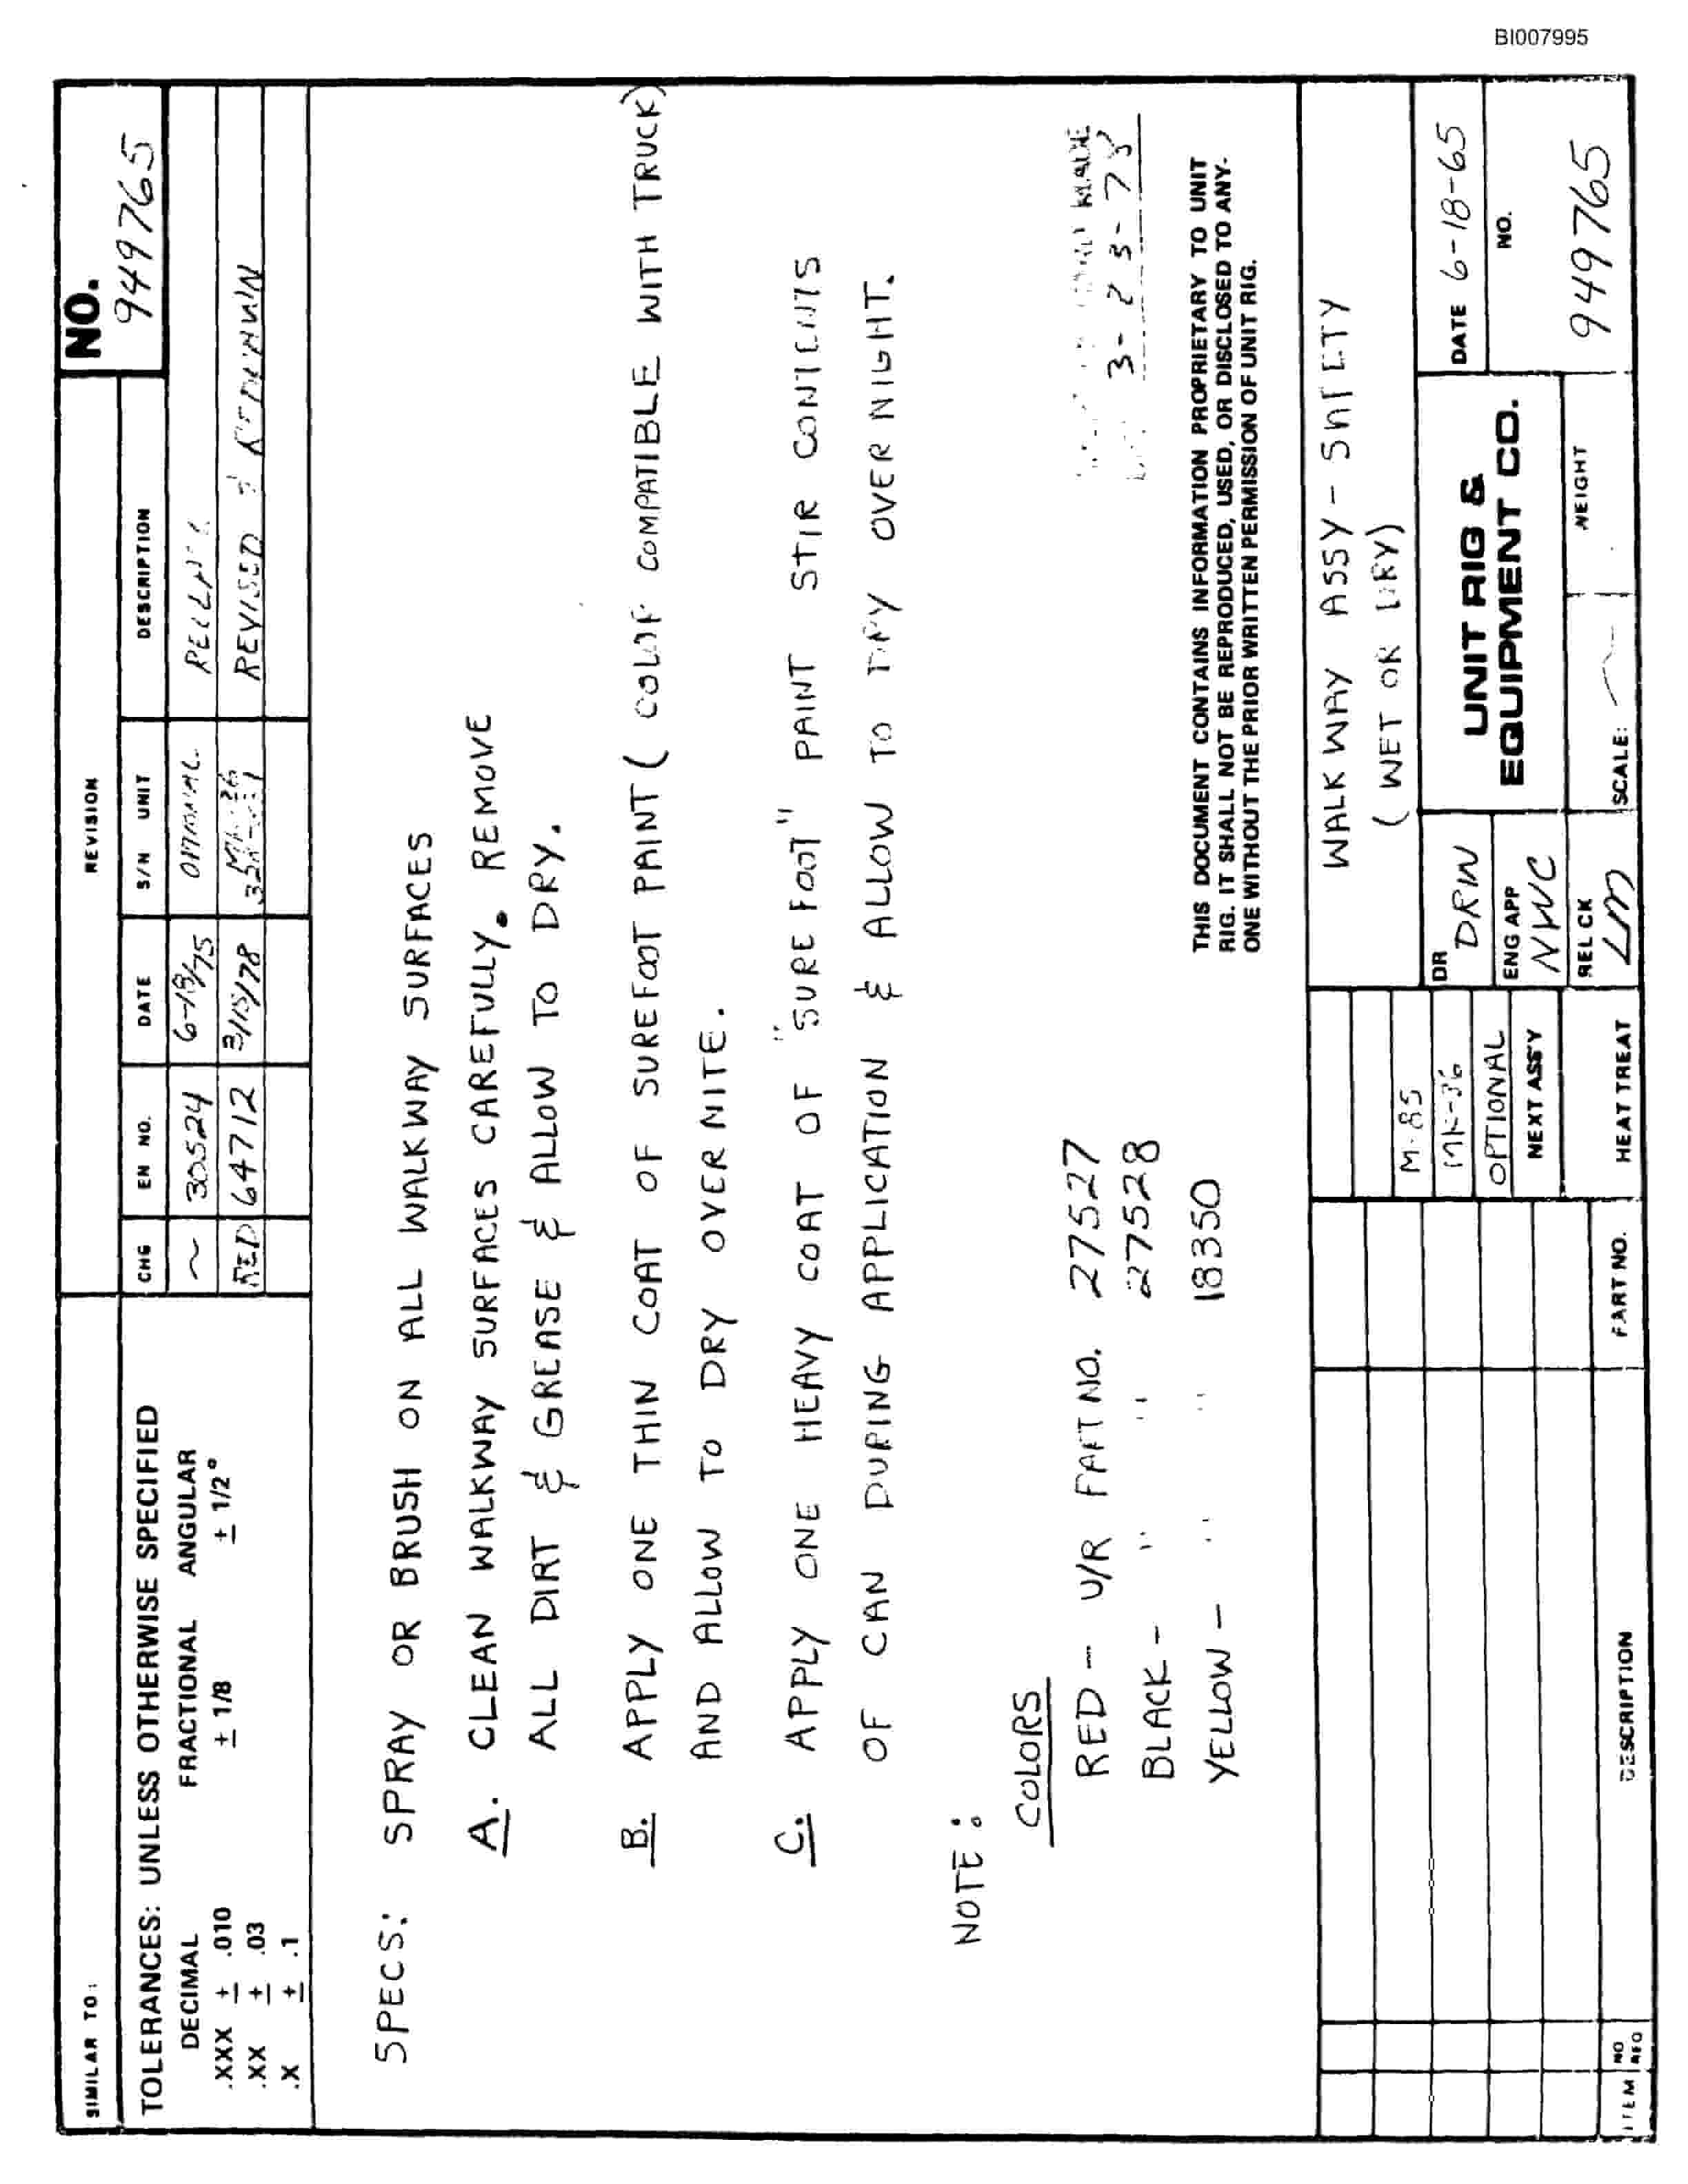 BI007995
SIMILAR TO:
REVISION
NO.
949765
TOLERANCES: UNLESS OTHERWISE SPECIFIED
DECIMAL FRACTIONAL ANGULAR
.XXX ± .010 ± 1/8 ± 1/2°
.XX ± .03
.X ± .1
CHG EN NO. DATE S/N UNIT DESCRIPTION
~ 30524 6-18/75
RED 64712 3/15/78 REVISED & REDRAWN
SPECS: SPRAY OR BRUSH ON ALL WALKWAY SURFACES
A. CLEAN WALKWAY SURFACES CAREFULLY. REMOVE
ALL DIRT & GREASE & ALLOW TO DRY.
B. APPLY ONE THIN COAT OF SUREFOOT PAINT (COLOR COMPATIBLE WITH TRUCK)
AND ALLOW TO DRY OVER NITE.
C. APPLY ONE HEAVY COAT OF "SURE FOOT" PAINT STIR CONTENTS
OF CAN DURING APPLICATION & ALLOW TO DRY OVER NIGHT.
NOTE:
COLORS
RED - U/R PART NO. 27527
BLACK - " " 27528
YELLOW - " " 18350
MADE
3-23-78
THIS DOCUMENT CONTAINS INFORMATION PROPRIETARY TO UNIT
RIG. IT SHALL NOT BE REPRODUCED, USED, OR DISCLOSED TO ANY-
ONE WITHOUT THE PRIOR WRITTEN PERMISSION OF UNIT RIG.
M-85
MK-36
OPTIONAL
NEXT ASS'Y
HEAT TREAT
ITEM NO REQ DESCRIPTION PART NO.
WALK WAY ASSY - SAFETY
(WET OR DRY)
DR DRIN
ENG APP NWC
REL CK LM
UNIT RIG &
EQUIPMENT CO.
DATE 6-18-65
SCALE: ~
WEIGHT
NO.
949765